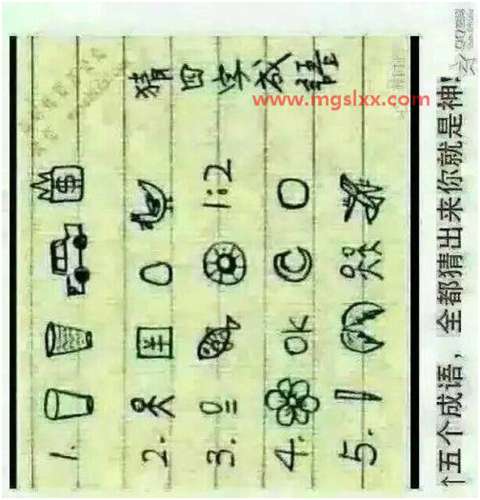 猜四字成語
www.mgslxx.com
1.
$
2.
羊
3.
1:2
4.
OK
5.
↑五个成语，全都猜出来你就是神!